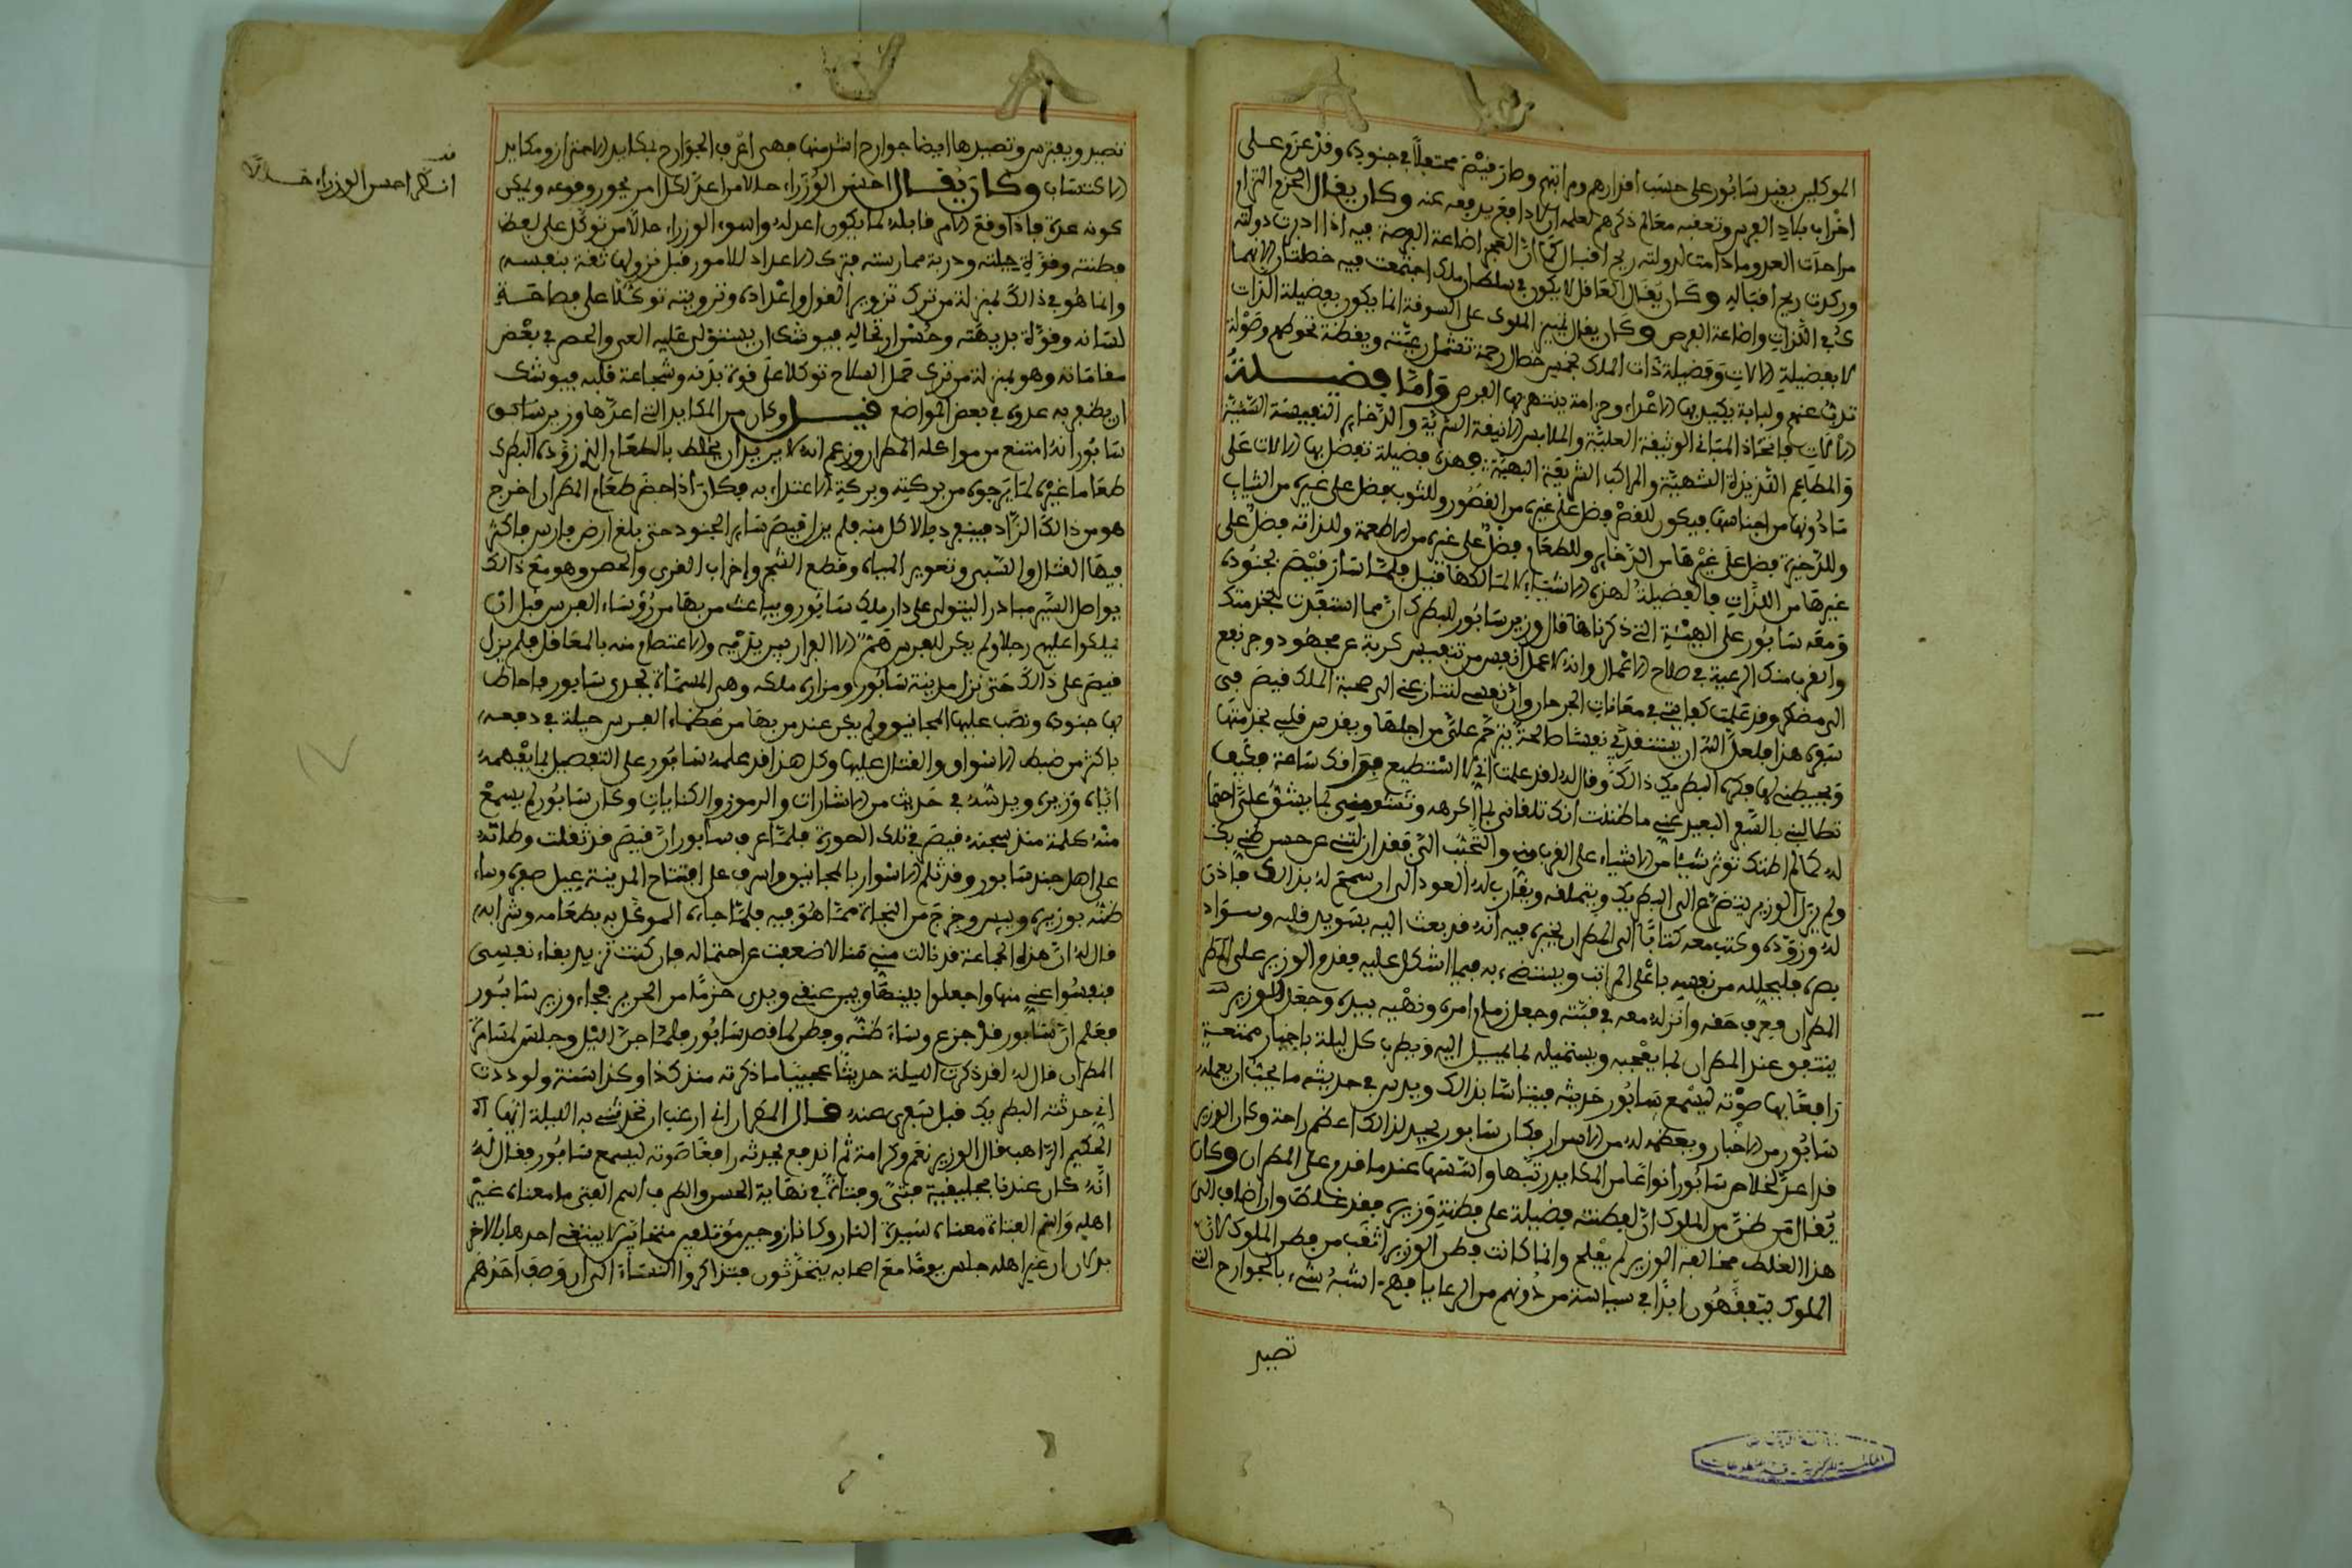 الموكلين بقبر سابور على حسب اقدارهم ومراتبهم وطار قيصر محتبلا في جنوده وقد عزم على
اخراب بلاد الفرس وتعفيه معالم ذكرهم لعلمه ان لا دافع يدفعه عنه وكان يقال الحزم انتهاز
العدو ما دامت لدولته ريح اقبال كما ان العجز اضاعة الفرصة فيه اذا ادبرت دولته
وركدت ريح اقباله وكان يقال العاقل لا يكون في سلطان ملك اجتمعت فيه خصلتان الانهما
في اللذات واضاعة الفرص وكان يقال تميز الملوك على السوقة انما يكون بفضيلة الذات
لا بفضيلة الالات وفضيلة ذات الملك بخمس خصال رحمة تشمل رعيته ويقظة تحوطهم وصولة
تذب عنهم ولبابة يكيد بها الاعداء وحزامة ينتهز بها الفرص واما فضيلة
الالات فاتخاذ المباني الوثيقة العلية والملابس الانيقة السرية والذخاير النفيسة السنية
والمطاعم اللذيذة الشهية والمراكب الشريفة البهية فهذه فضيلة تفضل بها الالات على
ما دونها من اجناسها فيكون للقصر فضل على غيره من القصور وللثوب فضل على غيره من الثياب
وللذخيرة فضل على غيرها من الذخاير وللطعام فضل على غيره من الاطعمة وللذاته فضل على
غيرها من اللذات فالفضيلة لهذه الاشياء لا لمالكها قيل فلما سار قيصر بجنوده
ومعه سابور على الهيئة التي ذكرناها قال وزير سابور للبطرك ان مما استفدت بخدمتك
والقرب منك الرغبة في صلاح الاعمال وانه لا عمل انفس من تنفيس كربة عن مجهود وجر نفع
الى مضطر وقد علمت كفايتي في معانات الجرحا وان نفسي لتنازعني الى صحبة الملك قيصر في
سفره هذا فلعل الله ان يستنقذ بي نفسا صالحة يترحم علي من اجلها ويقدس قلبي بخدمتها
ويحيطني لها فكره البطريك ذالك وقال له لقد علمت اني لا استطيع فراقك ساعة فكيف
تطالبني بالسفر البعيد عني ما ظننت انك تلقاني بما اكره
ولم يزل الوزير يتضرع الى البطريك ويتملقه ويقارب له العود الى ان سمح له بذالك فاذن
له وزوده وكتب معه كتابا الى المطران يخبره فيه انه قد بعث اليه بسويد قلبه وسواد
بصره فليحلله من نفسه باعلى المراتب ويستضيء به فيما اشكل عليه فقدم الوزير على المطران
المطران فعرف حقه وانزله معه في قبته وجعل زمام امره ونهيه بيده وجعل الوزير
ينتفق عند المطران بما يعجبه ويستميله بما يميل اليه ويطرب كل ليلة باخبار ممتعة
رافعا بها صوته ليسمع سابور حديثه فيتاسا بذالك ويدس في حديثه ما يحب ان يعلمه
سابور من الاخبار ويفطنه له من الاسرار فكان سابور يجد لذالك اعظم راحة وكان الوزير
قد اعد لخلاص سابور انواعا من المكايد رتبها واسسها عندما قدم على المطران وكان
يقال من ظن من الملوك ان لفطنته فضيلة على فطنة وزيره فقد غلط وان اضاف الى
هذا الغلط مخالفة الوزير لم يفلح وانما كانت فطن الوزير اثقب من فطن الملوك لان
الملوك يتفقهون ابدا في سياسة من دونهم من الرعايا فهم اشبه شيء بالجوارح التي
تصيد
تصيد ويفترس وتصيدها ايضا جوارح اشد منها فهي اعرف الجوارح بمكايد الاحتراز ومكايد
الاكتساب وكان يقال احسن الوزراء حالا من اعد لكل امر يجوز وقوعه ويمكن
كونه عدة فاذا وقع الامر قابله بما يكون اعد له واسوء الوزراء حالا من توكل على لفظ
فطنته وقوة حيلته ودربة ممارسته فترك الاعداد للامور قبل نزولها ثقة بنفسه
وانما هو في ذالك بمنزلة من ترك تزوير القول واعداده وترويته توكلا على فصاحة
لسانه وقوة بديهته وحسن ارتجاله فيوشك ان يستولى عليه العي والحصر في بعض
مقاماته وهو بمنزلة من ترك حمل السلاح توكلا على قوة بدنه وشجاعة قلبه فيوشك
ان يظفر به عدوه في بعض المواضع قيل وكان من المكايد التي اعدها وزير سابور
سابور انه امتنع من مواكلة المطران وزعم انه لا يريد ان يخلط بالطعام الذي زوده البطرك
طعاما غيره لما يرجوه من بركته وبركة الاغتذاء به فكان اذا حضر طعام المطران اخرج
هو من ذالك الزاد فينفرد بالاكل منه فلم يزل قيصر سايرا بجنوده حتى بلغ ارض فارس فاكثر
فيها القتل والسبي وتعوير المياه وقطع الشجر واخراب القرى والحصر وهو مع ذالك
يواصل السير مبادرا ليستولي على دار ملك سابور ويباعث من بها من رؤساء الفرس قبل ان
يملكوا عليهم رجلا ولم يكن للفرس هم الا الفرار بين يديه والاعتصام منه بالمعاقل فلم يزل
قيصر على ذالك حتى نزل مدينة سابور ومزار ملكه وهي المسماة بجندي سابور فاحاط
بها جنوده ونصب عليها المجانيق ولم يكن عند من بها من عظماء الفرس حيلة في دفعه
باكثر من ضبط الاسوار والقتال عليها وكل هذا قد علمه سابور على التفصيل بما يفهمه
اياه وزيره ويرشده في حديثه من الاشارات والرموز والكنايات وكان سابور لم يسمع
منه كلمة منذ سجنه قيصر في تلك الصورة فلما عرف سابور ان قيصر قد ثقلت وطاته
على اهل جند سابور وقد ثلم الاسوار بالمجانيق واشرف على افتتاح المدينة عيل صبره وساء
ظنه بوزيره ويئس وخرج من النجاة مما هو فيه فلما جاءه الموكل به بطعامه وشرابه
قال له ان هذه الجامعة قد نالت مني منالا ضعفت عن احتماله فان كنت تريد بقاء نفسي
فنفسوا عني منها واجعلوا بينها وبين عنقي ويدي خزما من الحرير فجاء وزير سابور
فعلم ان سابور قد جزع وساء ظنه وفطن لما قصد سابور فلما جن الليل وجلس لمسامرة
المطران قال له لقد ذكرت الليلة حديثا عجيبا ما ذكرته منذ كذا وكذا سنة ولوددت
اني حدثته البطريك قبل سفري عنه قال المطران اني ارغب ان تحدثني به الليلة ايها
الحكيم الراهب فقال الوزير نعم وكرامة ثم اندفع يحدثه رافعا صوته ليسمع سابور فقال له
انه كان عندنا بجليقية فتى وفتاة في نهاية الحسن والظرف اسم الفتى ما معناه عين
اهله واسم الفتاة معناه سيدة النار وكانا زوجين مؤتلفين متحابين لا يبتغي احدهما بالاخر
بدلا ان عين اهله جلس يوما مع اصحابه يتحدثون فتذاكروا النساء الى ان وصف احدهم
قف
انظر احسن الوزراء حالا